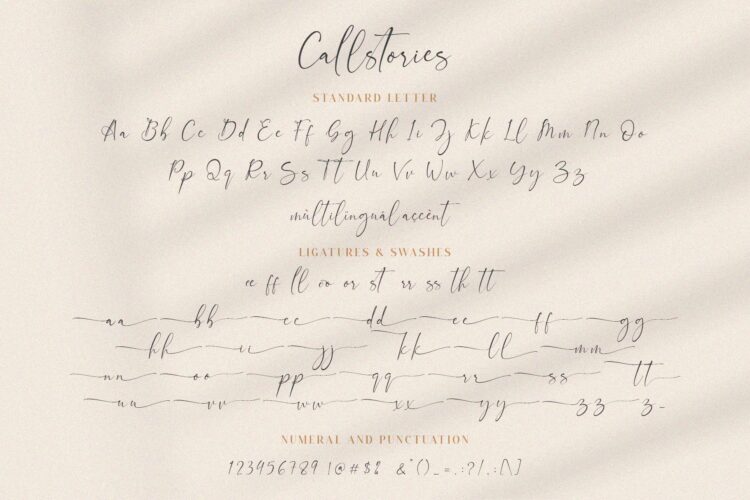 Callstories
STANDARD LETTER
Aa Bb Cc Dd Ee Ff Gg Hh Ii Jj Kk Ll Mm Nn Oo
Pp Qq Rr Ss Tt Uu Vv Ww Xx Yy Zz
mùltilinguàl aççènt
LIGATURES & SWASHES
ee ff ll oo or st rr ss th tt
aa bb cc dd ee ff gg
hh ii jj kk ll mm
nn oo pp qq rr ss tt
uu vv ww xx yy zz z
NUMERAL AND PUNCTUATION
123456789 !@#$% &*()_=,:?/.;[\]